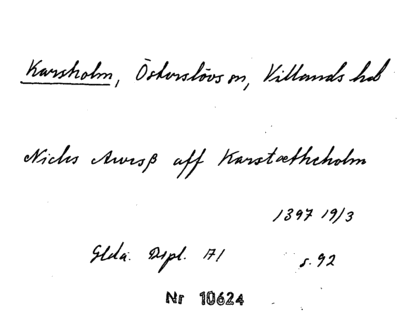 Karsholm, Österslövs sn, Villands hd
Niclis Awrsß aff Karstætheholm
1397 19/3
Glda. Dipl. 171 s. 92
Nr 10624